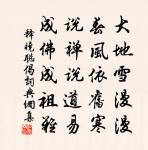 大地雪漫漫
春風依舊寒
說禪說道易
成佛成祖難
釋曉聰偈詞典網集